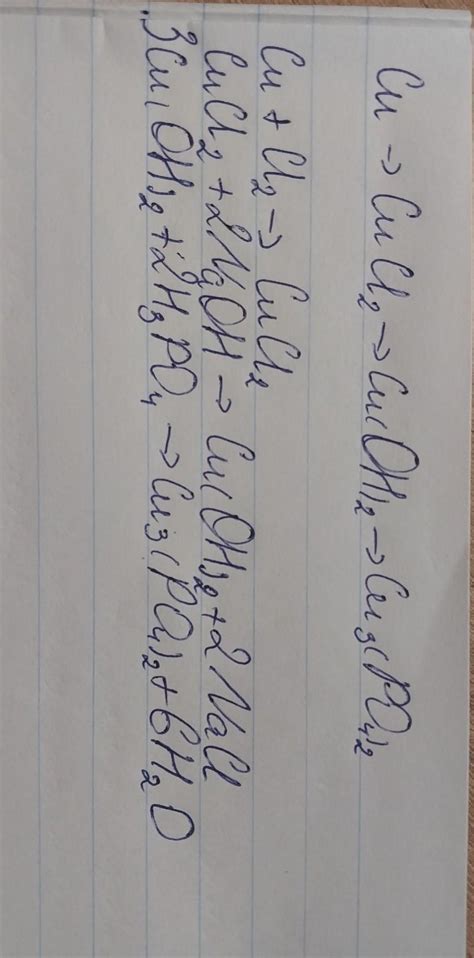 Cu → CuCl₂ → Cu(OH)₂ → Cu₃(PO₄)₂
Cu + Cl₂ → CuCl₂
CuCl₂ + 2NaOH → Cu(OH)₂ + 2NaCl
3Cu(OH)₂ + 2H₃PO₄ → Cu₃(PO₄)₂ + 6H₂O